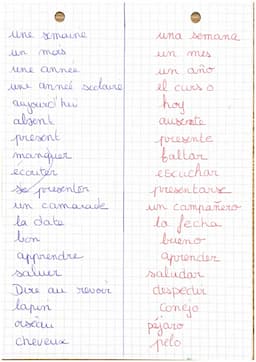 une semaine una semana
un mois un mes
une année un año
une anneé scolaire el curso
aujourd'hui hoy
absent ausente
present presente
manquer faltar
écouter escuchar
se presenter presentarse
un camarade un campañero
la date la fecha
bon bueno
apprendre aprender
saluer saludar
Dire au revoir despedir
lapin conejo
oiseau péjaro
cheveux pelo